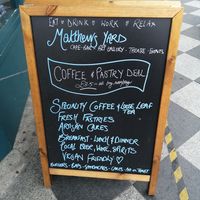 EAT · DRINK · WORK · RELAX
MATTHEWS YARD
CAFE-BAR · ART GALLERY · THEATRE · EVENTS
COFFEE & PASTRY DEAL
SPECIALTY COFFEE & LOOSE LEAF TEA
FRESH PASTRIES
ARTISAN CAKES
BREAKFAST - LUNCH & DINNER
LOCAL BEER, WINE, SPIRITS
VEGAN FRIENDLY ♡
BURGERS · BAPS · SANDWICHES · CAKES